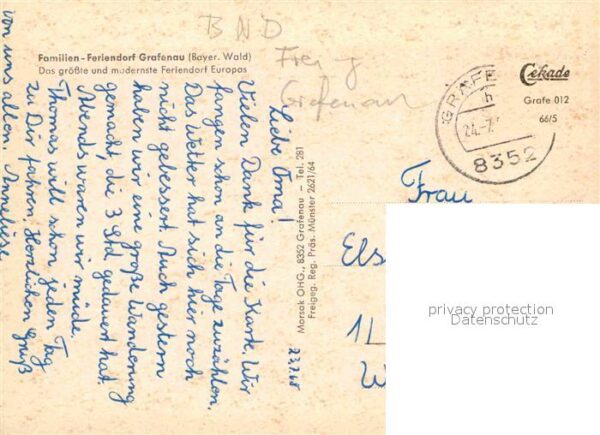 BND
Frey
Grafenau
Familien - Feriendorf Grafenau (Bayer. Wald)
Das größte und modernste Feriendorf Europas
Cekade
Grafe 012
66/5
GRAFE
24.-7.
8352
Morsak OHG., 8352 Grafenau — Tel. 281
Freigeg. Reg. Präs. Münster 2621/64
23.7.68
Liebe Oma!
Vielen Dank für die Karte. Wir
fangen schon an die Tage zuzählen.
Das Wetter hat sich hier noch
nicht gebessert. Auch gestern
haben wir eine große Wanderung
gemacht, die 3 Std. gedauert hat.
Abends waren wir müde.
Thomas will schon jeden Tag
zu Dir fahren. Herzlichen Gruß
von uns allen. Anneliese
Frau
Els
1
privacy protection
Datenschutz